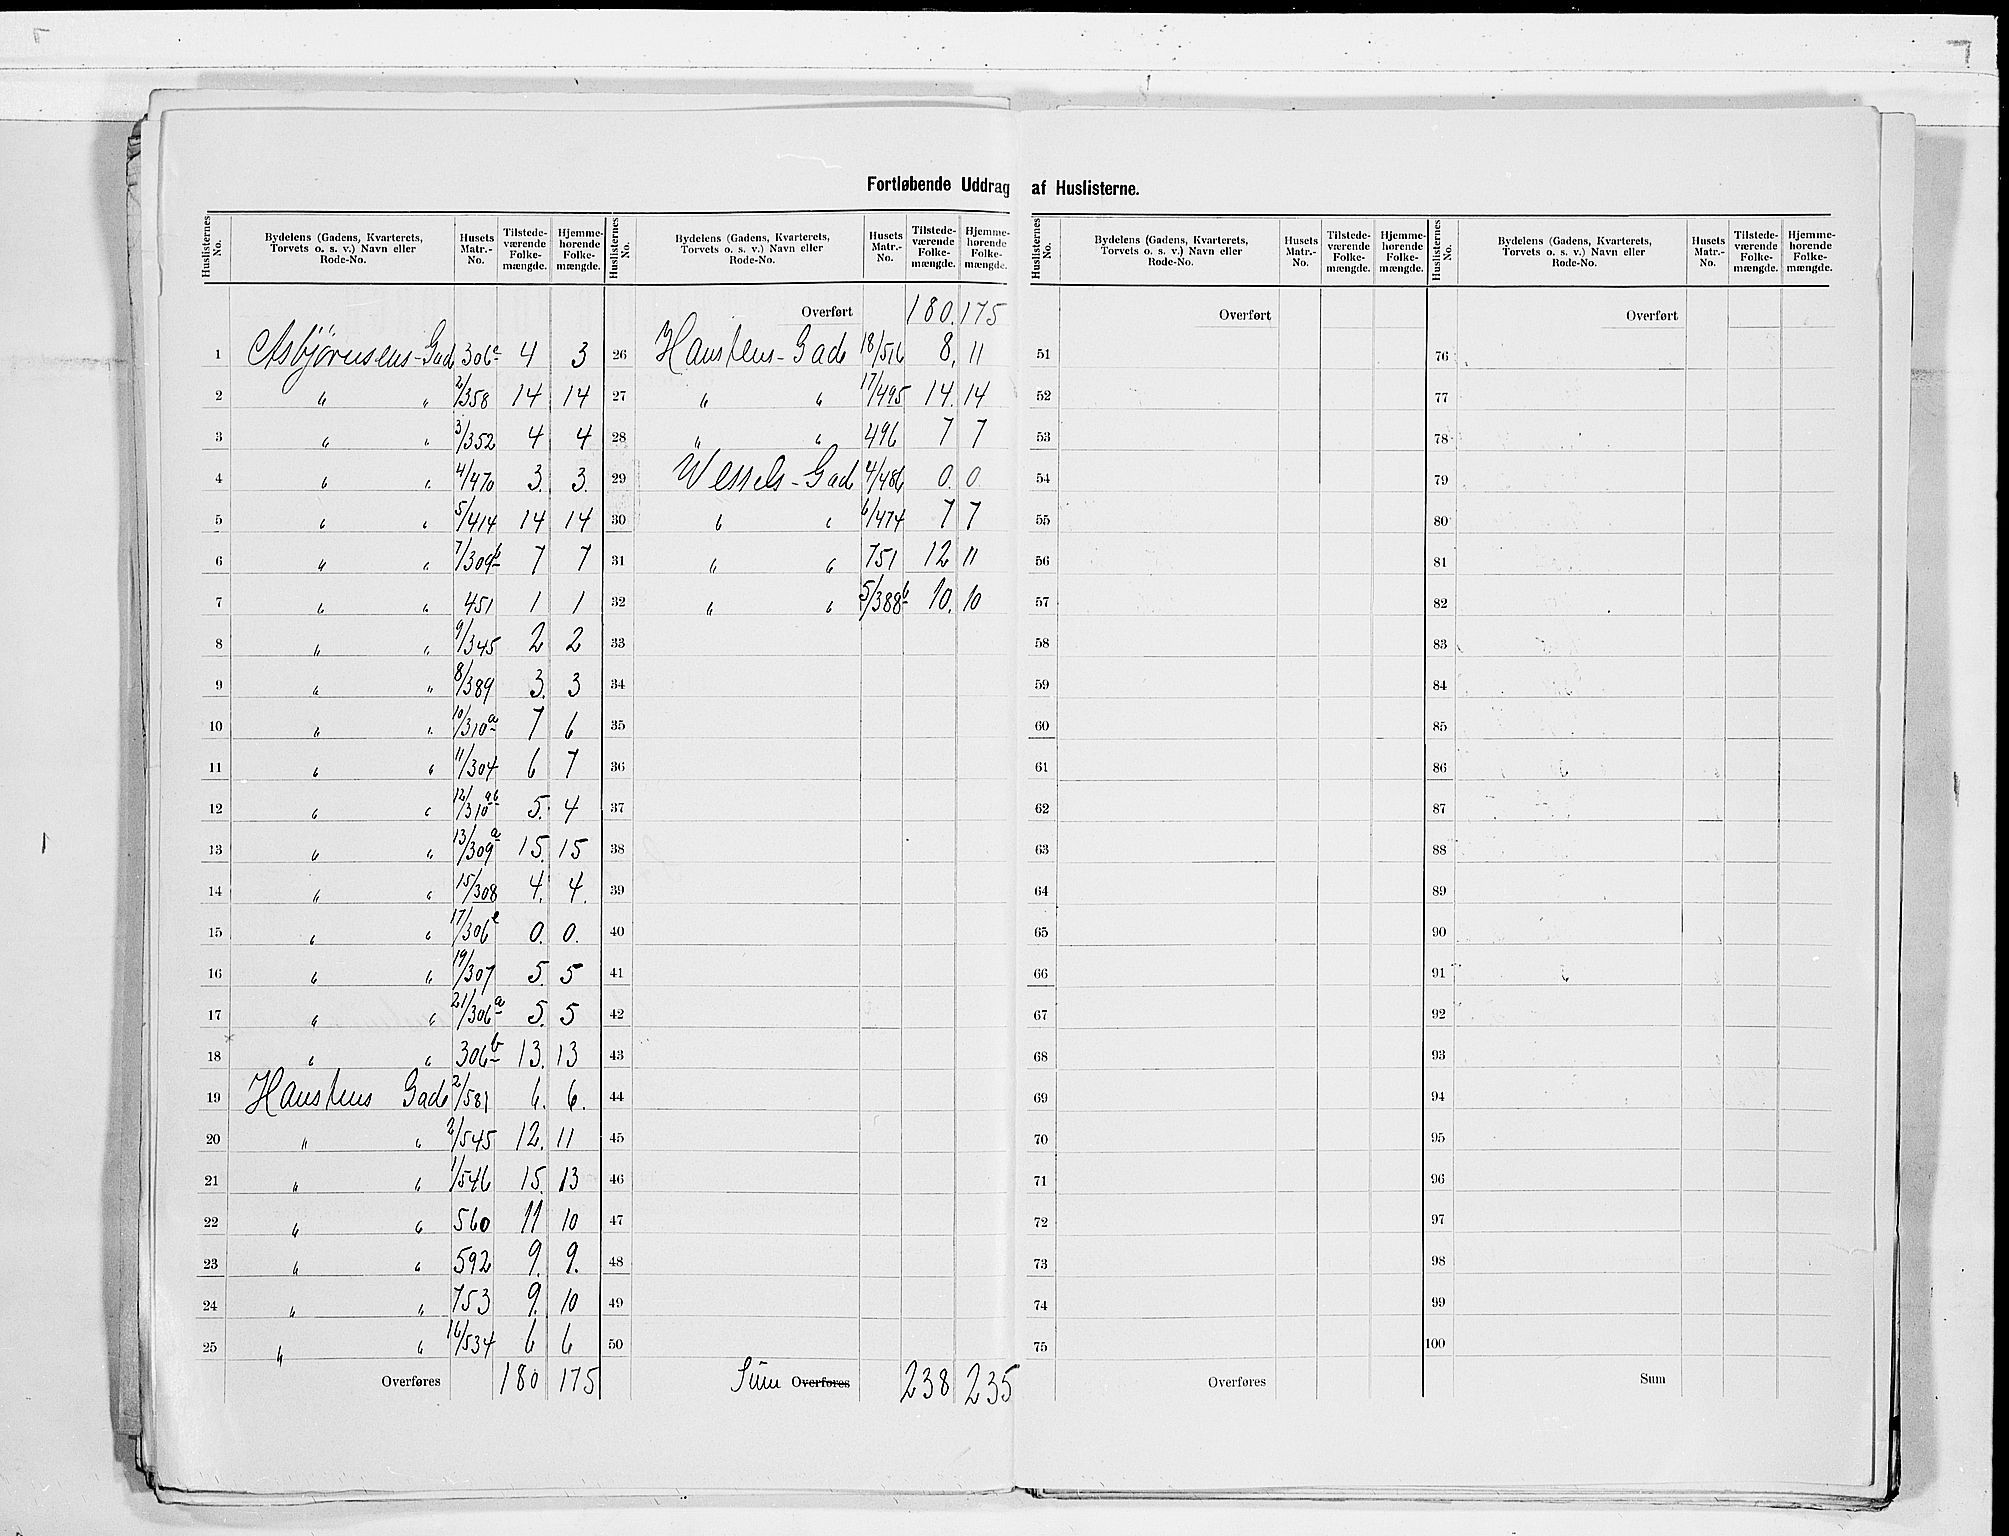 Fortløbende Uddrag af Huslisterne.
Huslisternes No. | Bydelens (Gadens, Kvarterets, Torvets o. s. v.) Navn eller Rode-No. | Husets Matr.-No. | Tilstede-værende Folke-mængde. | Hjemme-hørende Folke-mængde. | Huslisternes No. | Bydelens (Gadens, Kvarterets, Torvets o. s. v.) Navn eller Rode-No. | Husets Matr.-No. | Tilstede-værende Folke-mængde. | Hjemme-hørende Folke-mængde. | Huslisternes No. | Bydelens (Gadens, Kvarterets, Torvets o. s. v.) Navn eller Rode-No. | Husets Matr.-No. | Tilstede-værende Folke-mængde. | Hjemme-hørende Folke-mængde. | Huslisternes No. | Bydelens (Gadens, Kvarterets, Torvets o. s. v.) Navn eller Rode-No. | Husets Matr.-No. | Tilstede-værende Folke-mængde. | Hjemme-hørende Folke-mængde.
Overført 180. 175 Overført Overført
1 Asbjørnsens-Gade 4 3 26 Hanstens-Gade 18/516 8. 11 51 76
2 " " 2/358 14 14 27 " " 17/495 14. 14 52 77
3 " " 3/352 4 4 28 " " 496 7 7 53 78
4 " " 4/470 3. 3. 29 Wessels-Gade 4/486 0. 0. 54 79
5 " " 5/414 14 14 30 " " 6/474 7 7 55 80
6 " " 7/309b 7 7 31 " " 751 12 11 56 81
7 " " 451 1 1 32 " " 5/388b 10. 10 57 82
8 " " 9/345 2 2 33 58 83
9 " " 8/389 3. 3 34 59 84
10 " " 10/310a 7 6 35 60 85
11 " " 11/304 6 7 36 61 86
12 " " 12/310ab 5. 4 37 62 87
13 " " 13/309a 15. 15 38 63 88
14 " " 15/308 4. 4. 39 64 89
15 " " 17/306e 0. 0. 40 65 90
16 " " 19/307 5. 5 41 66 91
17 " " 21/306a 5. 5 42 67 92
18 " " 306b 13. 13 43 68 93
19 Hanstens Gade 2/581 6. 6. 44 69 94
20 " " /545 12. 11 45 70 95
21 " " 1/546 15. 13 46 71 96
22 " " 560 11 10 47 72 97
23 " " 592 9. 9. 48 73 98
24 " " 753 9. 10 49 74 99
25 " " 16/534 6 6 50 75 100
Overføres 180 175 Sum Overføres 238 235 Overføres Sum